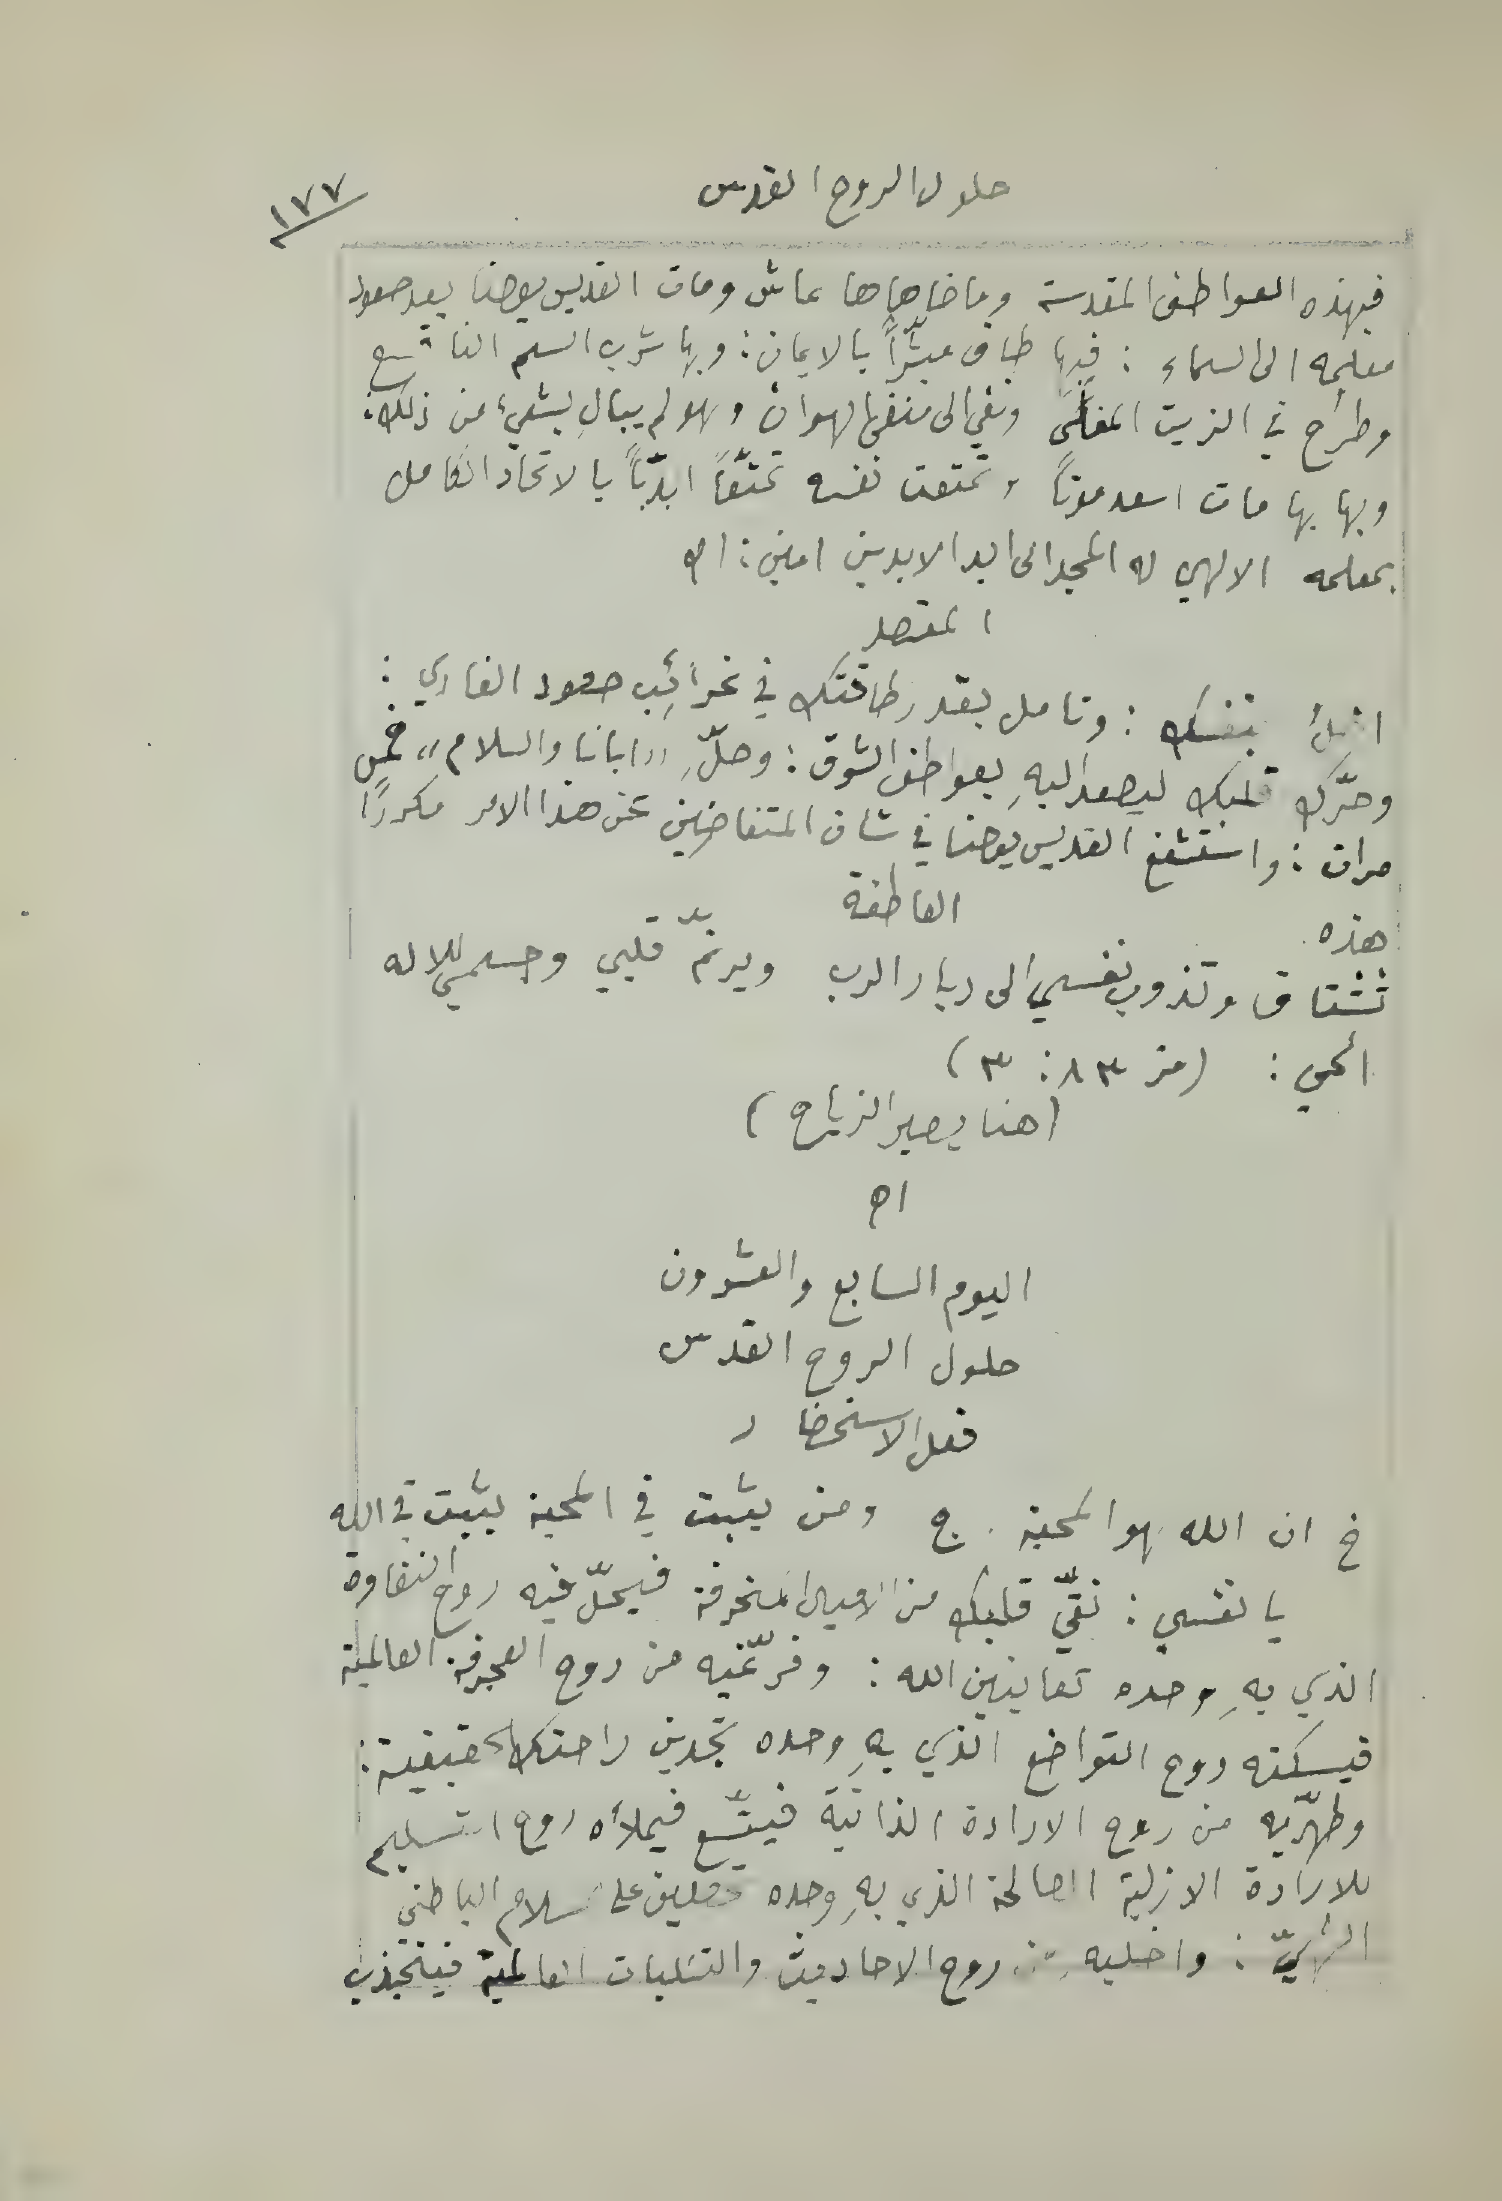 حلول الروح القدس
١٧٧
فبهذه العواطف المقدسة وما ضاهاها عاش ومات القديس يوحنا بعد صعود
معلمه الى السماء : فبها طاف مبشّراً بالايمان : وبها شرب السم الناقع
وطُرح في الزيت المغلى ونفي الى منفى الهوان وهو لم يبالِ بشيء من ذلك :
وبها بها مات اسعد موتاً وتمتعت نفسه تمتّعاً ابديّاً بالاتحاد الكامل
بمعلمه الالهي له المجد الى ابد الابدين امين : اھ
المقصد
بنفسك : وتامل بقدر طاقتك في غرائب صعود الفادي :
وحرّك قلبك ليصعد اليهِ بعواطف الشوق : وصلِّ «ابانا والسلام» خمس
مرات : واستشفع القديس يوحنا في شان المتغاضين عن هذا الامر مكررًا
هذه
العاطفة
تشتاق وتذوب نفسي الى ديار الرب ويرنّم قلبي وجسمي للاله
الحي : (مز ٨٣ : ٣)
(هنا يصير الزياح)
اھ
اليوم السابع والعشرون
حلول الروح القدس
فعل الاستحضار
خ ان الله هو المحبة . ج ومن يثبت في المحبة يثبت في الله
يا نفسي : نقّي قلبك من الاميال المنحرفة فيحلّ فيه روح النقاوة
الذي بهِ وحده تعاينين الله : وفرّغيه من روح العجرفة العالمية
فيسكنه روح التواضع الذي بهِ وحده تجدين راحتك الحقيقية :
وطهّريه من روح الارادة الذاتية فيتّسع فيملأه روح التسليم
للارادة الازلية الصالحة الذي بهِ وحده تحصلين على سلام الباطني
: واخليه من روح الاحاديث والتسليات العالمية فينجذب